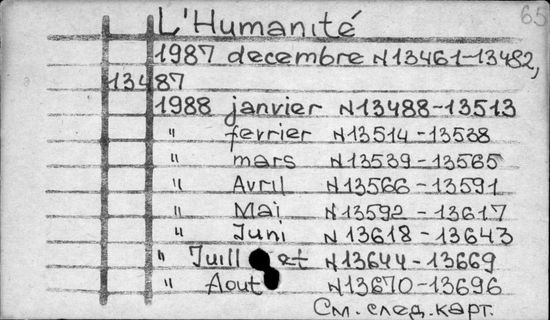 65
L'Humanité
1987 decembre N13461-13482,
13487
1988 janvier N13488-13513
" fevrier N13514-13538
" mars N13539-13565
" Avril N13566-13591
" Mai N13592-13617
" Juni N13618-13643
" Juill et N13644-13669
" Aout N13670-13696
См. след. карт.